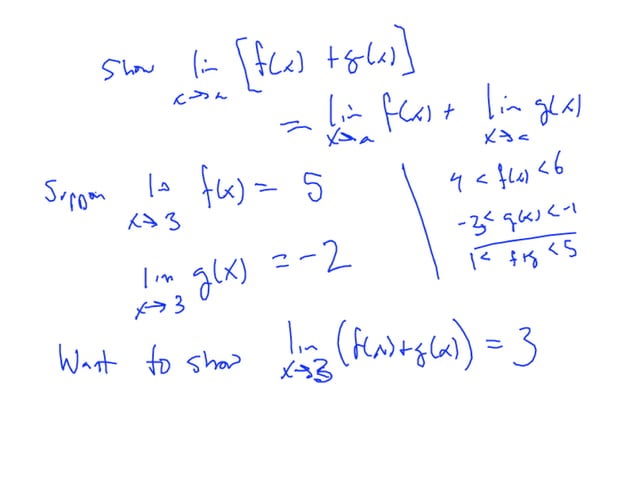 Show lim x→a [f(x) + g(x)]
= lim x→a f(x) + lim x→a g(x)
Suppose lim x→3 f(x) = 5
lim x→3 g(x) = -2
4 < f(x) < 6
-3 < g(x) < -1
1 < f+g < 5
Want to show lim x→3 (f(x)+g(x)) = 3